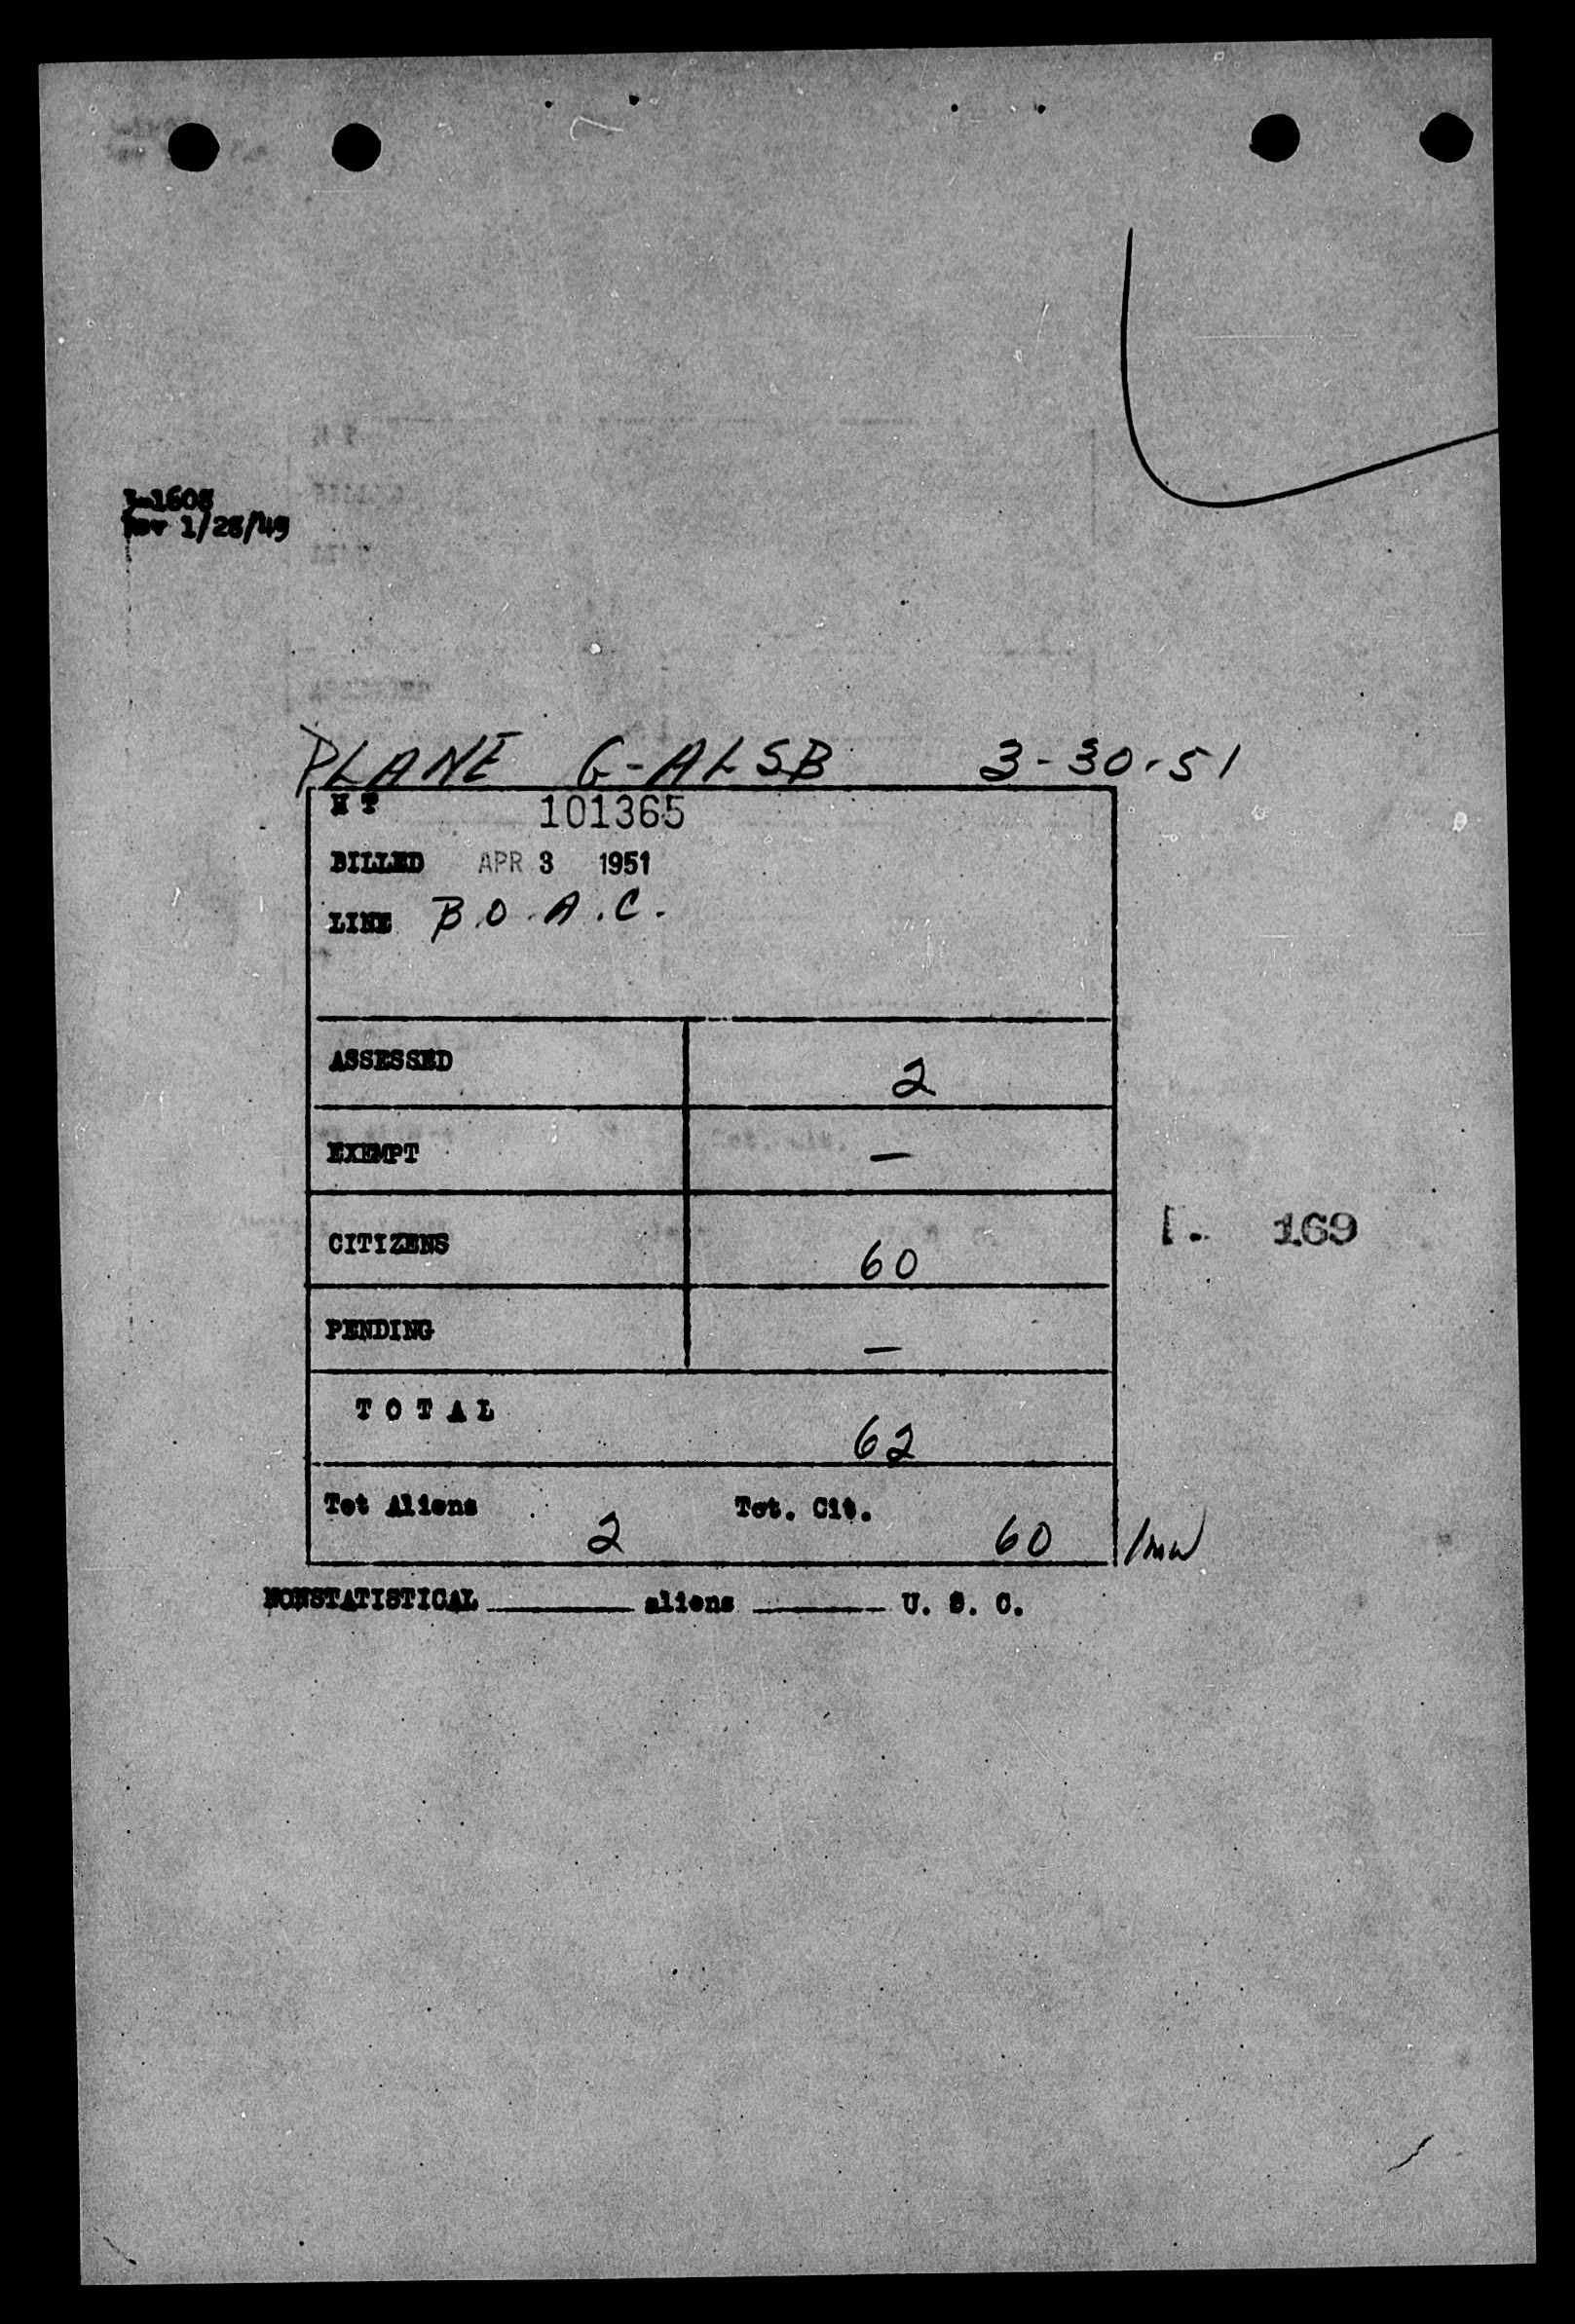 Rev 1/28/49
PLANE G-ALSB 3-30-51
H T 101365
BILLED APR 3 1951
LINE B.O.A.C.
ASSESSED 2
EXEMPT —
CITIZENS 60
169
PENDING —
TOTAL 62
Tot Aliens 2 Tot. Cit. 60 /mw
NONSTATISTICAL ______ aliens ______ U. S. C.